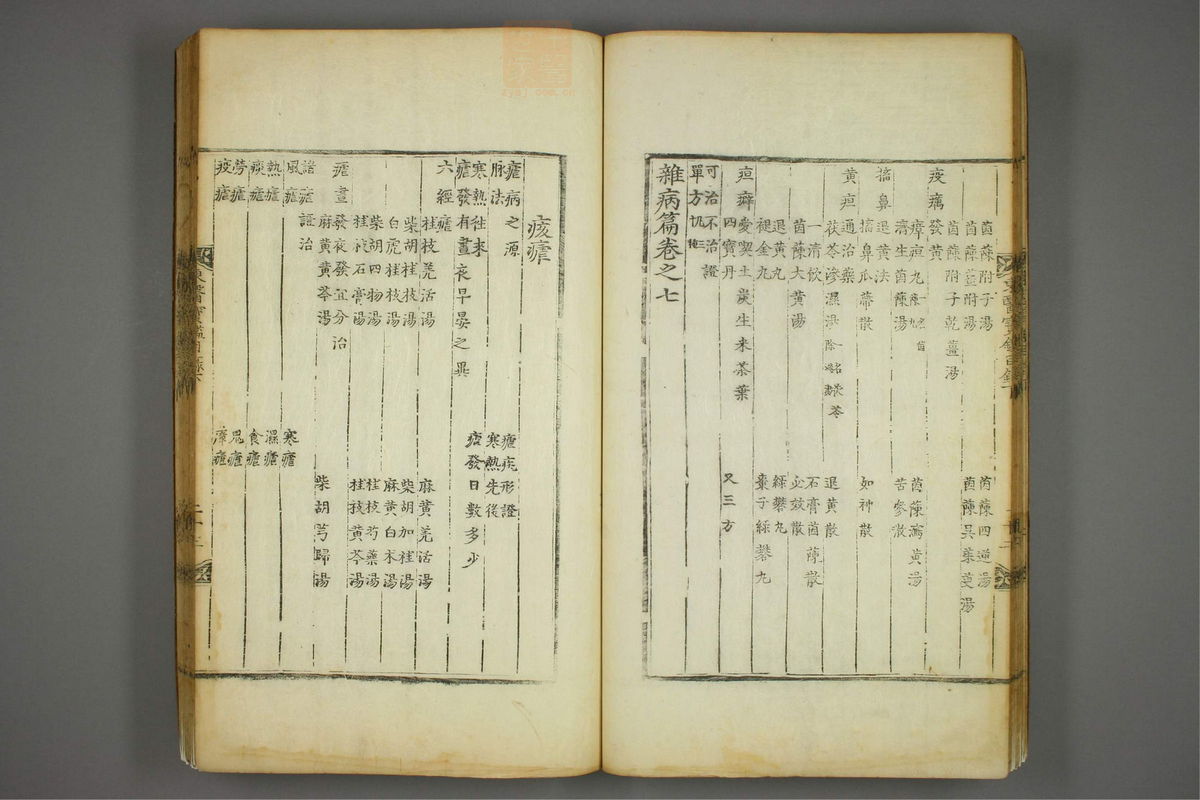 茵蔯附子湯 茵蔯四逆湯
茵蔯薑附湯 茵蔯吳茱萸湯
茵蔯附子乾薑湯
疫癘發黃
瘴疸丸 茵蔯瀉黃湯
濟生茵蔯湯 苦參散
搐鼻退黃法
搐鼻瓜蔕散 如神散
黃疸通治藥
茯苓滲濕湯 退黃散
一清飲 石膏茵蔯散
茵蔯大黃湯 必效散
退黃丸 綠礬丸
褪金丸 棗子綠礬丸
疸癖愛喫土炭生米茶葉
四寶丹 又三方
可治不治證
單方
雜病篇卷之七
痎瘧
瘧病之源 瘧疾形證
脉法 寒熱先後
寒熱往來 瘧發日數多少
瘧發有晝夜早晏之異
六經瘧
桂枝羌活湯 麻黃羌活湯
柴胡桂枝湯 柴胡加桂湯
白虎桂枝湯 麻黃白朮湯
柴胡四物湯 桂枝芍藥湯
桂枝石膏湯 桂枝黃芩湯
瘧晝發夜發宜分治
麻黃黃芩湯 柴胡芎歸湯
諸瘧證治
風瘧 寒瘧
熱瘧 濕瘧
痰瘧 食瘧
勞瘧 鬼瘧
疫瘧 瘴瘧